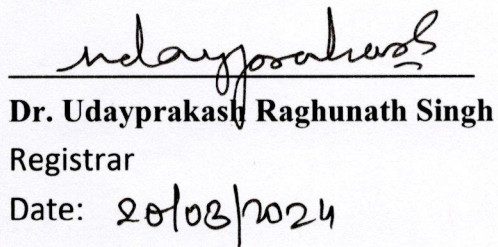 udayprakash
Dr. Udayprakash Raghunath Singh
Registrar
Date: 20/03/2024